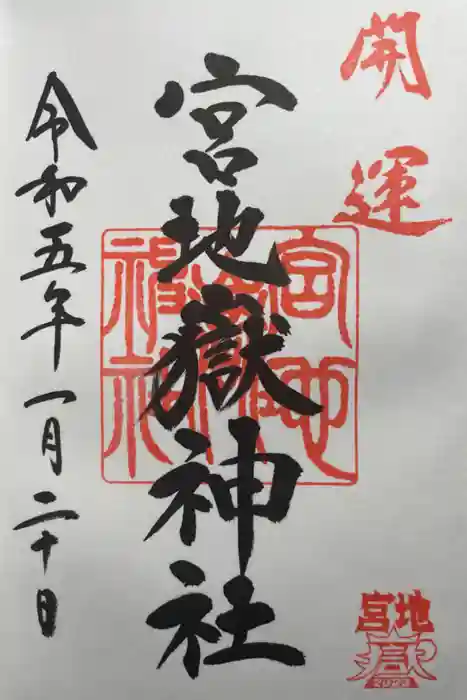 開運
宮地嶽神社
令和五年一月二十日
宮地
嶽
2023